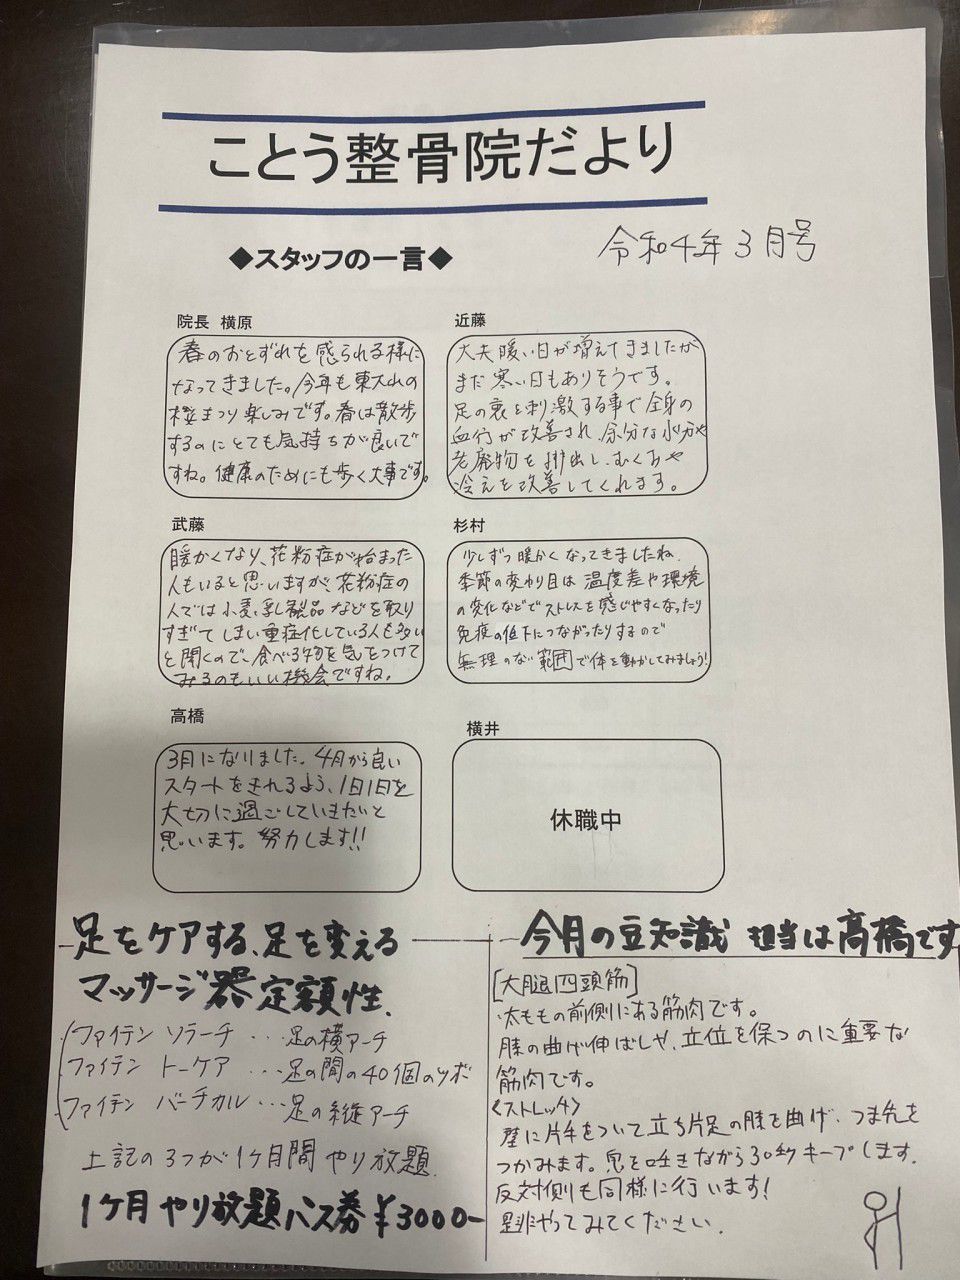 ことう整骨院だより
令和4年3月号
◆スタッフの一言◆
院長 横原
春のおとずれを感られる様に
なってきました。今年も東大山の
桜まつり楽しみです。春は散歩
するのにとても気持ちが良いで
すね。健康のためにも歩く大事です。
近藤
大夫暖い日が増えてきましたが
まだ寒い日もありそうです。
足の裏を刺激する事で全身の
血行が改善され、余分な水分や
老廃物を排出し、むくみや
冷えを改善してくれます。
武藤
暖かくなり、花粉症が始まった
人もいると思いますが、花粉症の
人では小麦、乳製品などを取り
すぎてしまい重症化している人も多い
と聞くので、食べる物を気をつけて
みるのもいい機会ですね。
杉村
少しずつ暖かくなってきましたね
季節の変わり目は温度差や環境
の変化などでストレスを感じやすくなったり
免疫の低下につながったりするので
無理のない範囲で体を動かしてみましょう!
高橋
3月になりました。4月から良い
スタートをきれるよう、1日1日を
大切に過ごしていきたいと
思います。努力します!!
横井
休職中
足をケアする、足を変える
マッサージ器定額性.
ファイテン ソラーチ … 足の横アーチ
ファイテン トーケア … 足の間の40個のツボ
ファイテン バーチカル … 足の縦アーチ
上記の3つが1ヶ月間やり放題.
1ヶ月やり放題パス券¥3000-
今月の豆知識 担当は高橋です
[大腿四頭筋]
太ももの前側にある筋肉です。
膝の曲げ伸ばしや、立位を保つのに重要な
筋肉です。
<ストレッチ>
壁に片手をついて立ち片足の膝を曲げ、つま先を
つかみます。息を吐きながら30秒キープします.
反対側も同様に行います!
是非やってみてください.